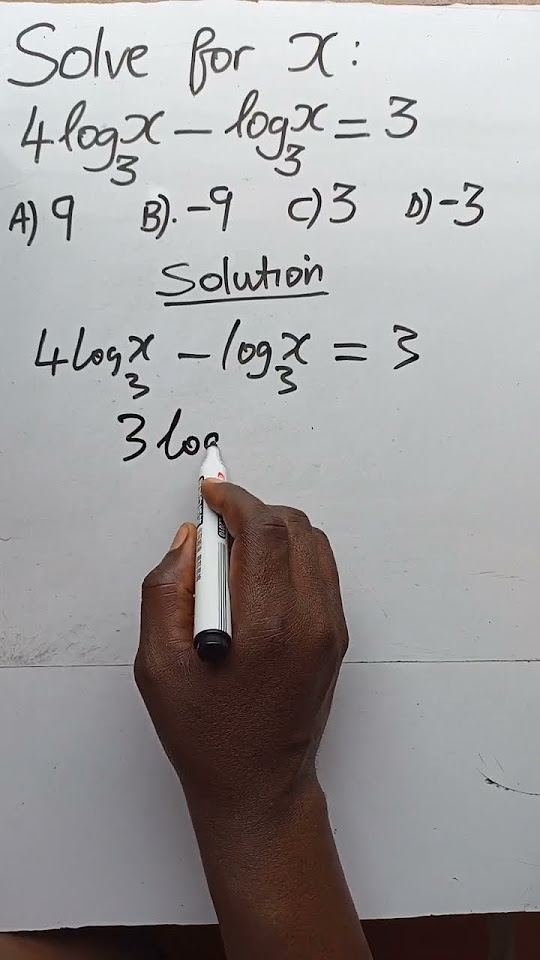 Solve for x:
4log₃x − log₃x = 3
A) 9 B). −9 C) 3 D) −3
Solution
4log₃x − log₃x = 3
3 log